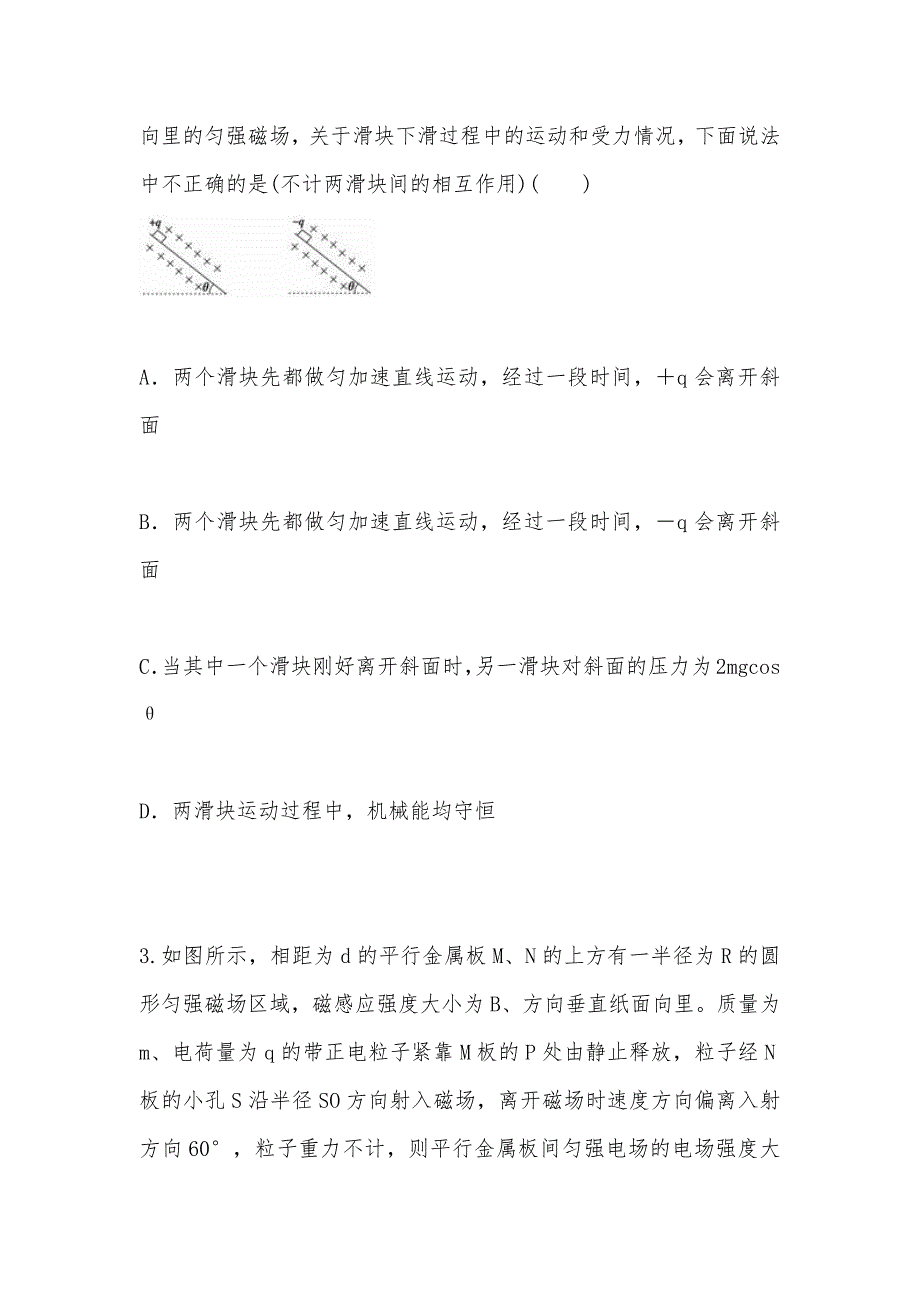 向里的匀强磁场，关于滑块下滑过程中的运动和受力情况，下面说法
中不正确的是(不计两滑块间的相互作用)(　　)
+q −q
θ θ
A．两个滑块先都做匀加速直线运动，经过一段时间，＋q会离开斜
面
B．两个滑块先都做匀加速直线运动，经过一段时间，－q会离开斜
面
C.当其中一个滑块刚好离开斜面时,另一滑块对斜面的压力为2mgcos
θ
D．两滑块运动过程中，机械能均守恒
3.如图所示，相距为d的平行金属板M、N的上方有一半径为R的圆
形匀强磁场区域，磁感应强度大小为B、方向垂直纸面向里。质量为
m、电荷量为q的带正电粒子紧靠M板的P处由静止释放，粒子经N
板的小孔S沿半径SO方向射入磁场，离开磁场时速度方向偏离入射
方向60°，粒子重力不计，则平行金属板间匀强电场的电场强度大